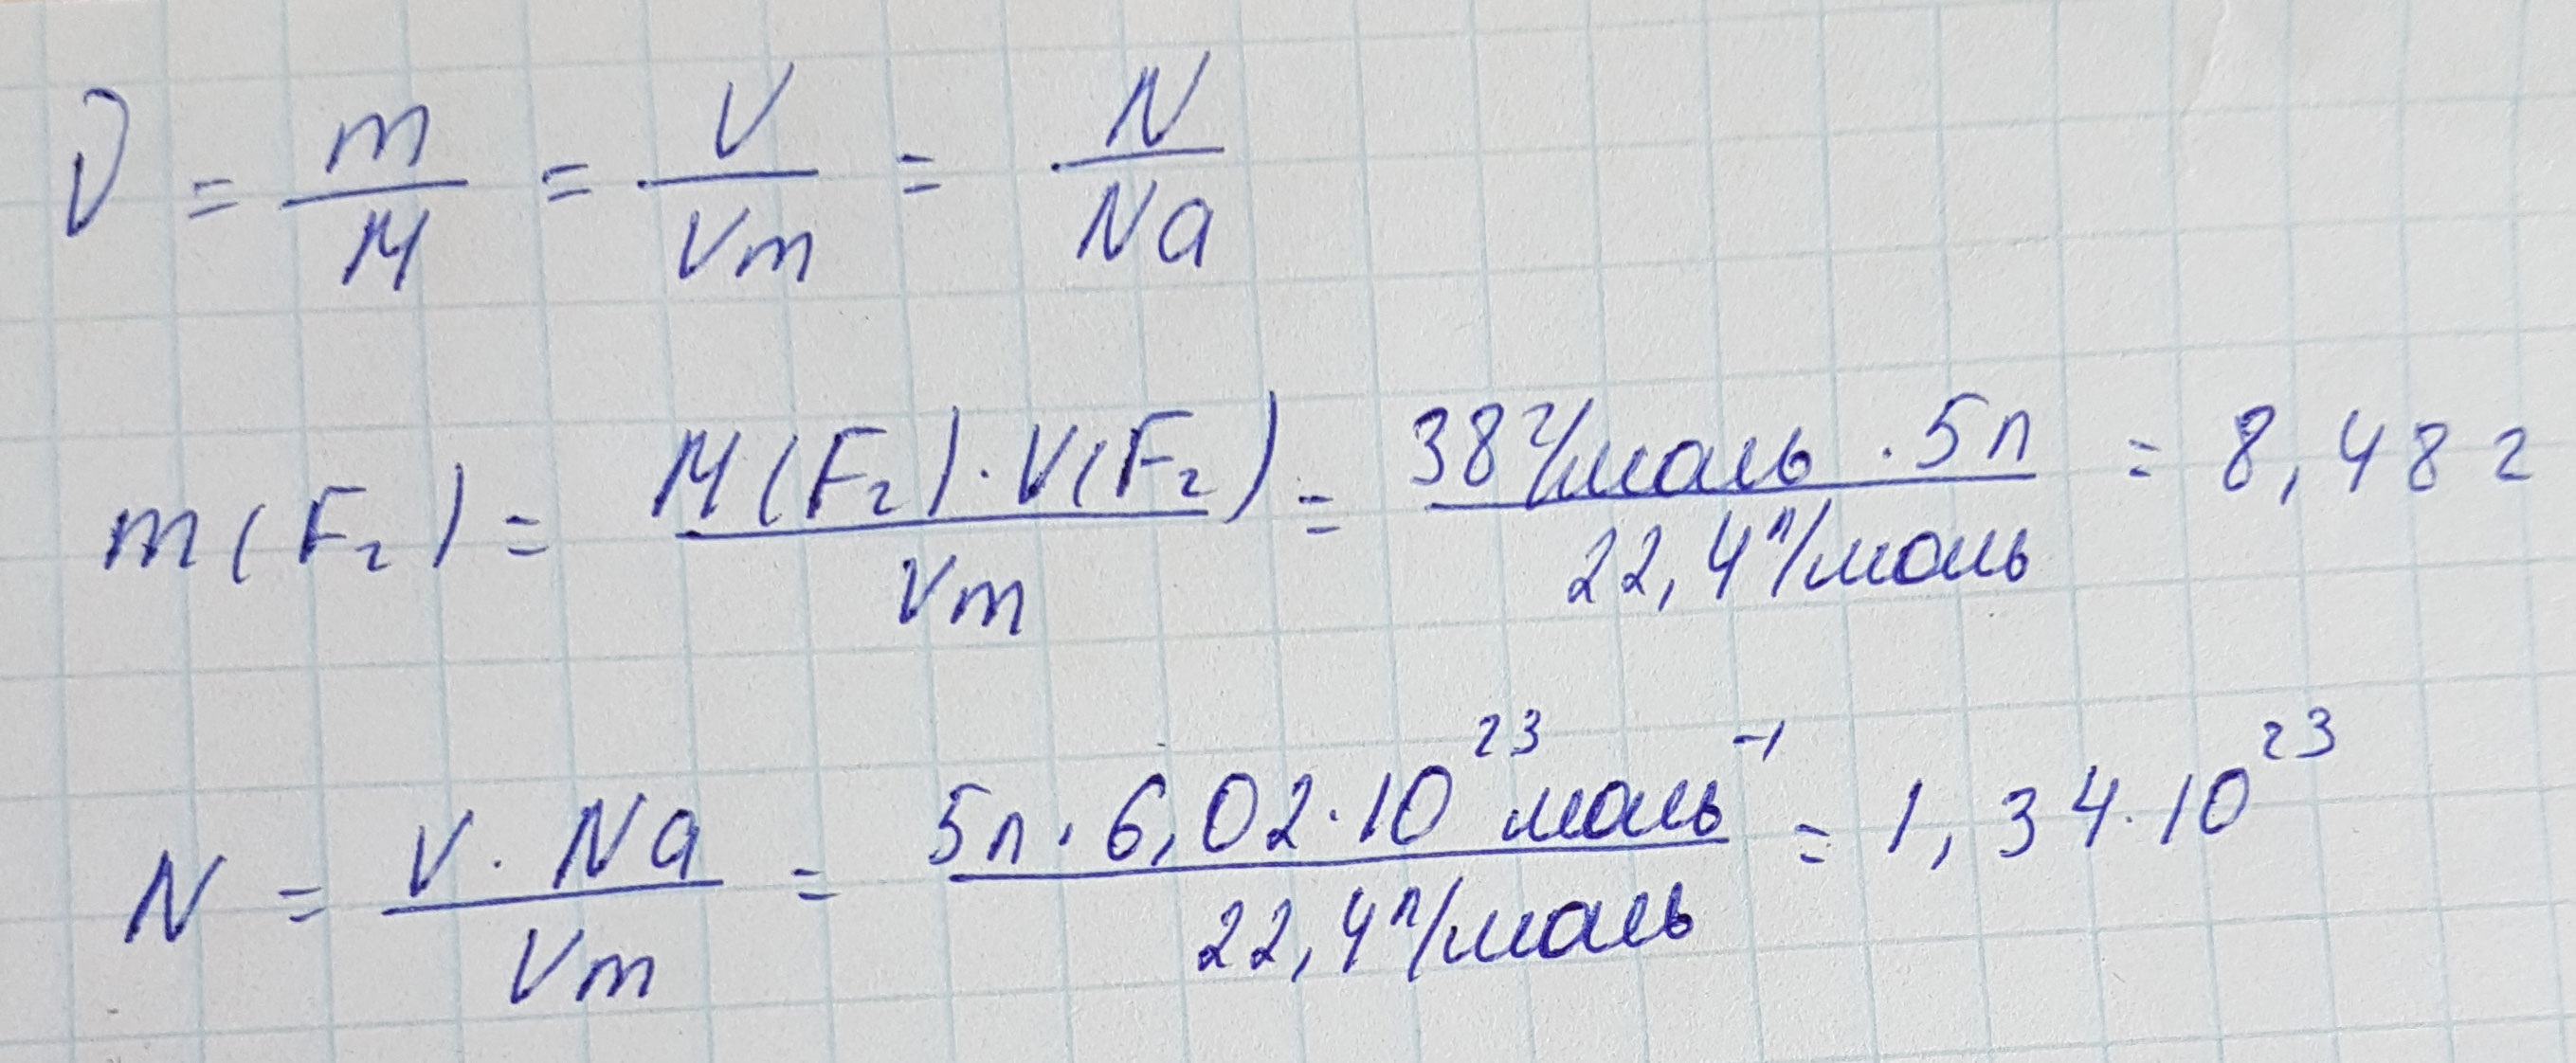 ν = m/M = V/Vm = N/Na
m(F₂) = M(F₂)·V(F₂)/Vm = 38 г/моль · 5л / 22,4 л/моль = 8,48 г
N = V · Na/Vm = 5л · 6,02·10²³ моль⁻¹ / 22,4 л/моль = 1,34·10²³